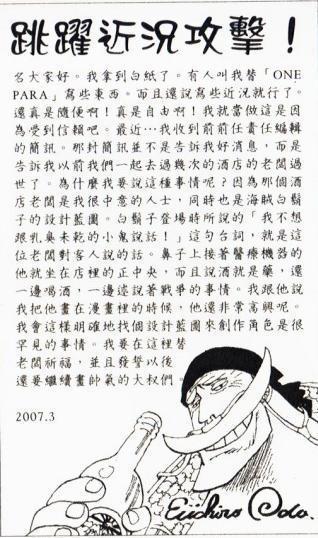 跳躍近況攻擊！
各大家好。我拿到白紙了。有人叫我替「ONE
PARA」寫些東西。而且還說寫些近況就行了。
還真是隨便啊！真是自由啊！我就當做這是因
為受到信賴吧。最近…我收到前前任責任編輯
的簡訊。那封簡訊並不是告訴我好消息，而是
告訴我以前我們一起去過幾次的酒店的老闆過
世了。為什麼我要說這種事情呢？因為那個酒
店老闆是我很中意的人士，同時也是海賊白鬍
子的設計藍圖。白鬍子登場時所說的「我不想
跟乳臭未乾的小鬼說話！」這句台詞，就是這
位老闆對客人說的話。鼻子上接著醫療機器的
他就坐在店裡的正中央，而且說酒就是藥，還
一邊喝酒，一邊述說著戰爭的事情。我跟他說
我把他畫在漫畫裡的時候，他還非常高興呢。
我會這樣明確地找個設計藍圖來創作角色是很
罕見的事情。我要在這裡替
老闆祈福，並且發誓以後
還要繼續畫帥氣的大叔們。
2007.3
Eiichiro Oda.